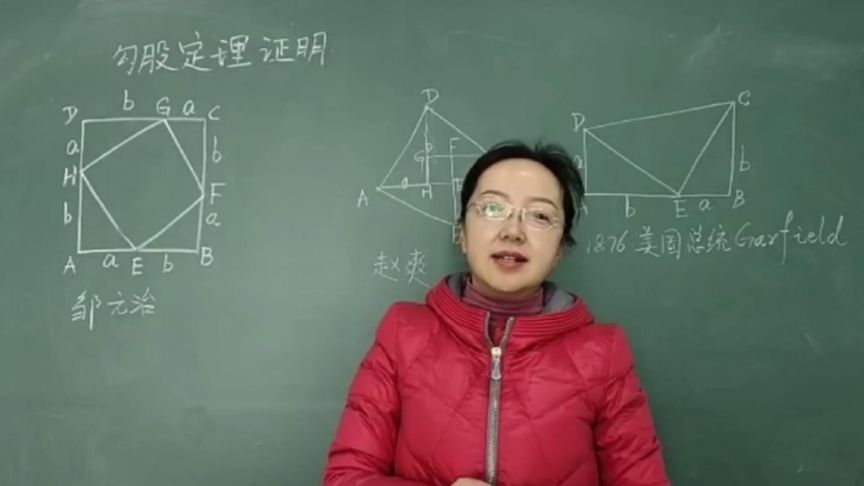 勾股定理证明
D b G a C
a b
H F
b a
A a E b B
邹元治
D
G F
A a H
赵爽
C
D
a b
b E a B
1876.美国总统Garfield